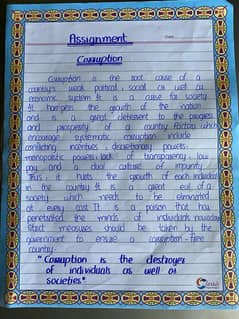 Assignment
Date:
Corruption
Corruption is the root cause of a
country's weak political, social as well as
economic system. It is a curse for society.
It hampers the growth of the nation
and is a great deterrent to the progress
and prosperity of a country. Factors which
encourage systematic corruption include
conflicting incentives, discretionary powers,
monopolistic powers, lack of transparency, low
pay and a culture of impunity.
Thus it hurts the growth of each individual
in the country. It is a great evil of a
society which needs to be eliminated
at every cost. It is a poison that has
penetrated the minds of individuals nowadays
Strict measures should be taken by the
government to ensure a corruption-free
country.
"Corruption is the destroyer
of individuals as well as
societies"